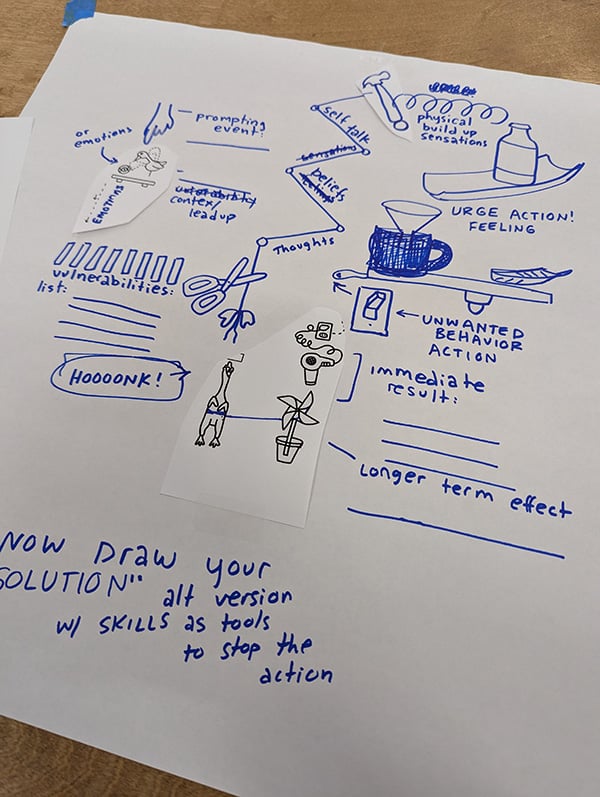 or
emotions
prompting
event:
EMOTIONS
vulnerability
contex/
leadup
self talk
sensations
beliefs
feelings
Thoughts
physical
build up
sensations
URGE ACTION!
FEELING
vulnerabilities:
list:
UNWANTED
BEHAVIOR
ACTION
HOOOONK!
immediate
result:
Longer term effect
NOW DRAW your
SOLUTION"
alt version
w/ SKILLS as tools
to stop the
action